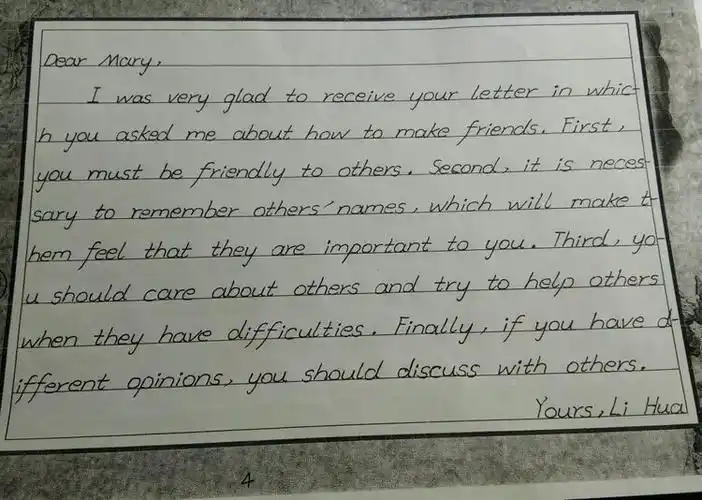 Dear Mary,
I was very glad to receive your letter in whic-
h you asked me about how to make friends. First,
you must be friendly to others. Second, it is neces-
sary to remember others' names, which will make t-
hem feel that they are important to you. Third, yo-
u should care about others and try to help others
when they have difficulties. Finally, if you have d-
ifferent opinions, you should discuss with others.
Yours, Li Hua
4